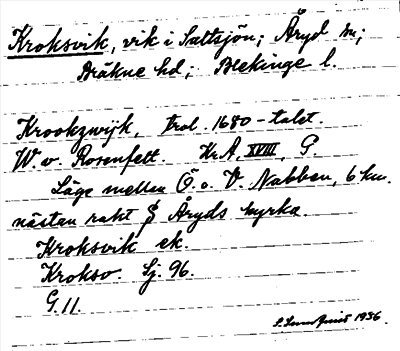 Kroksvik, vik i Saltsjön; Åryd sn;
Bräkne hd; Blekinge l.
Krookzwijk, trol. 1680-talet.
W. v. Rosenfelt. Kr.A, XVIII, G
Läge mellan Ö. o. V. Nabben, 6 km.
nästan rakt S Åryds kyrka.
Kroksvik ek.
Kroksv. Sj. 96.
G. 11.
1936.